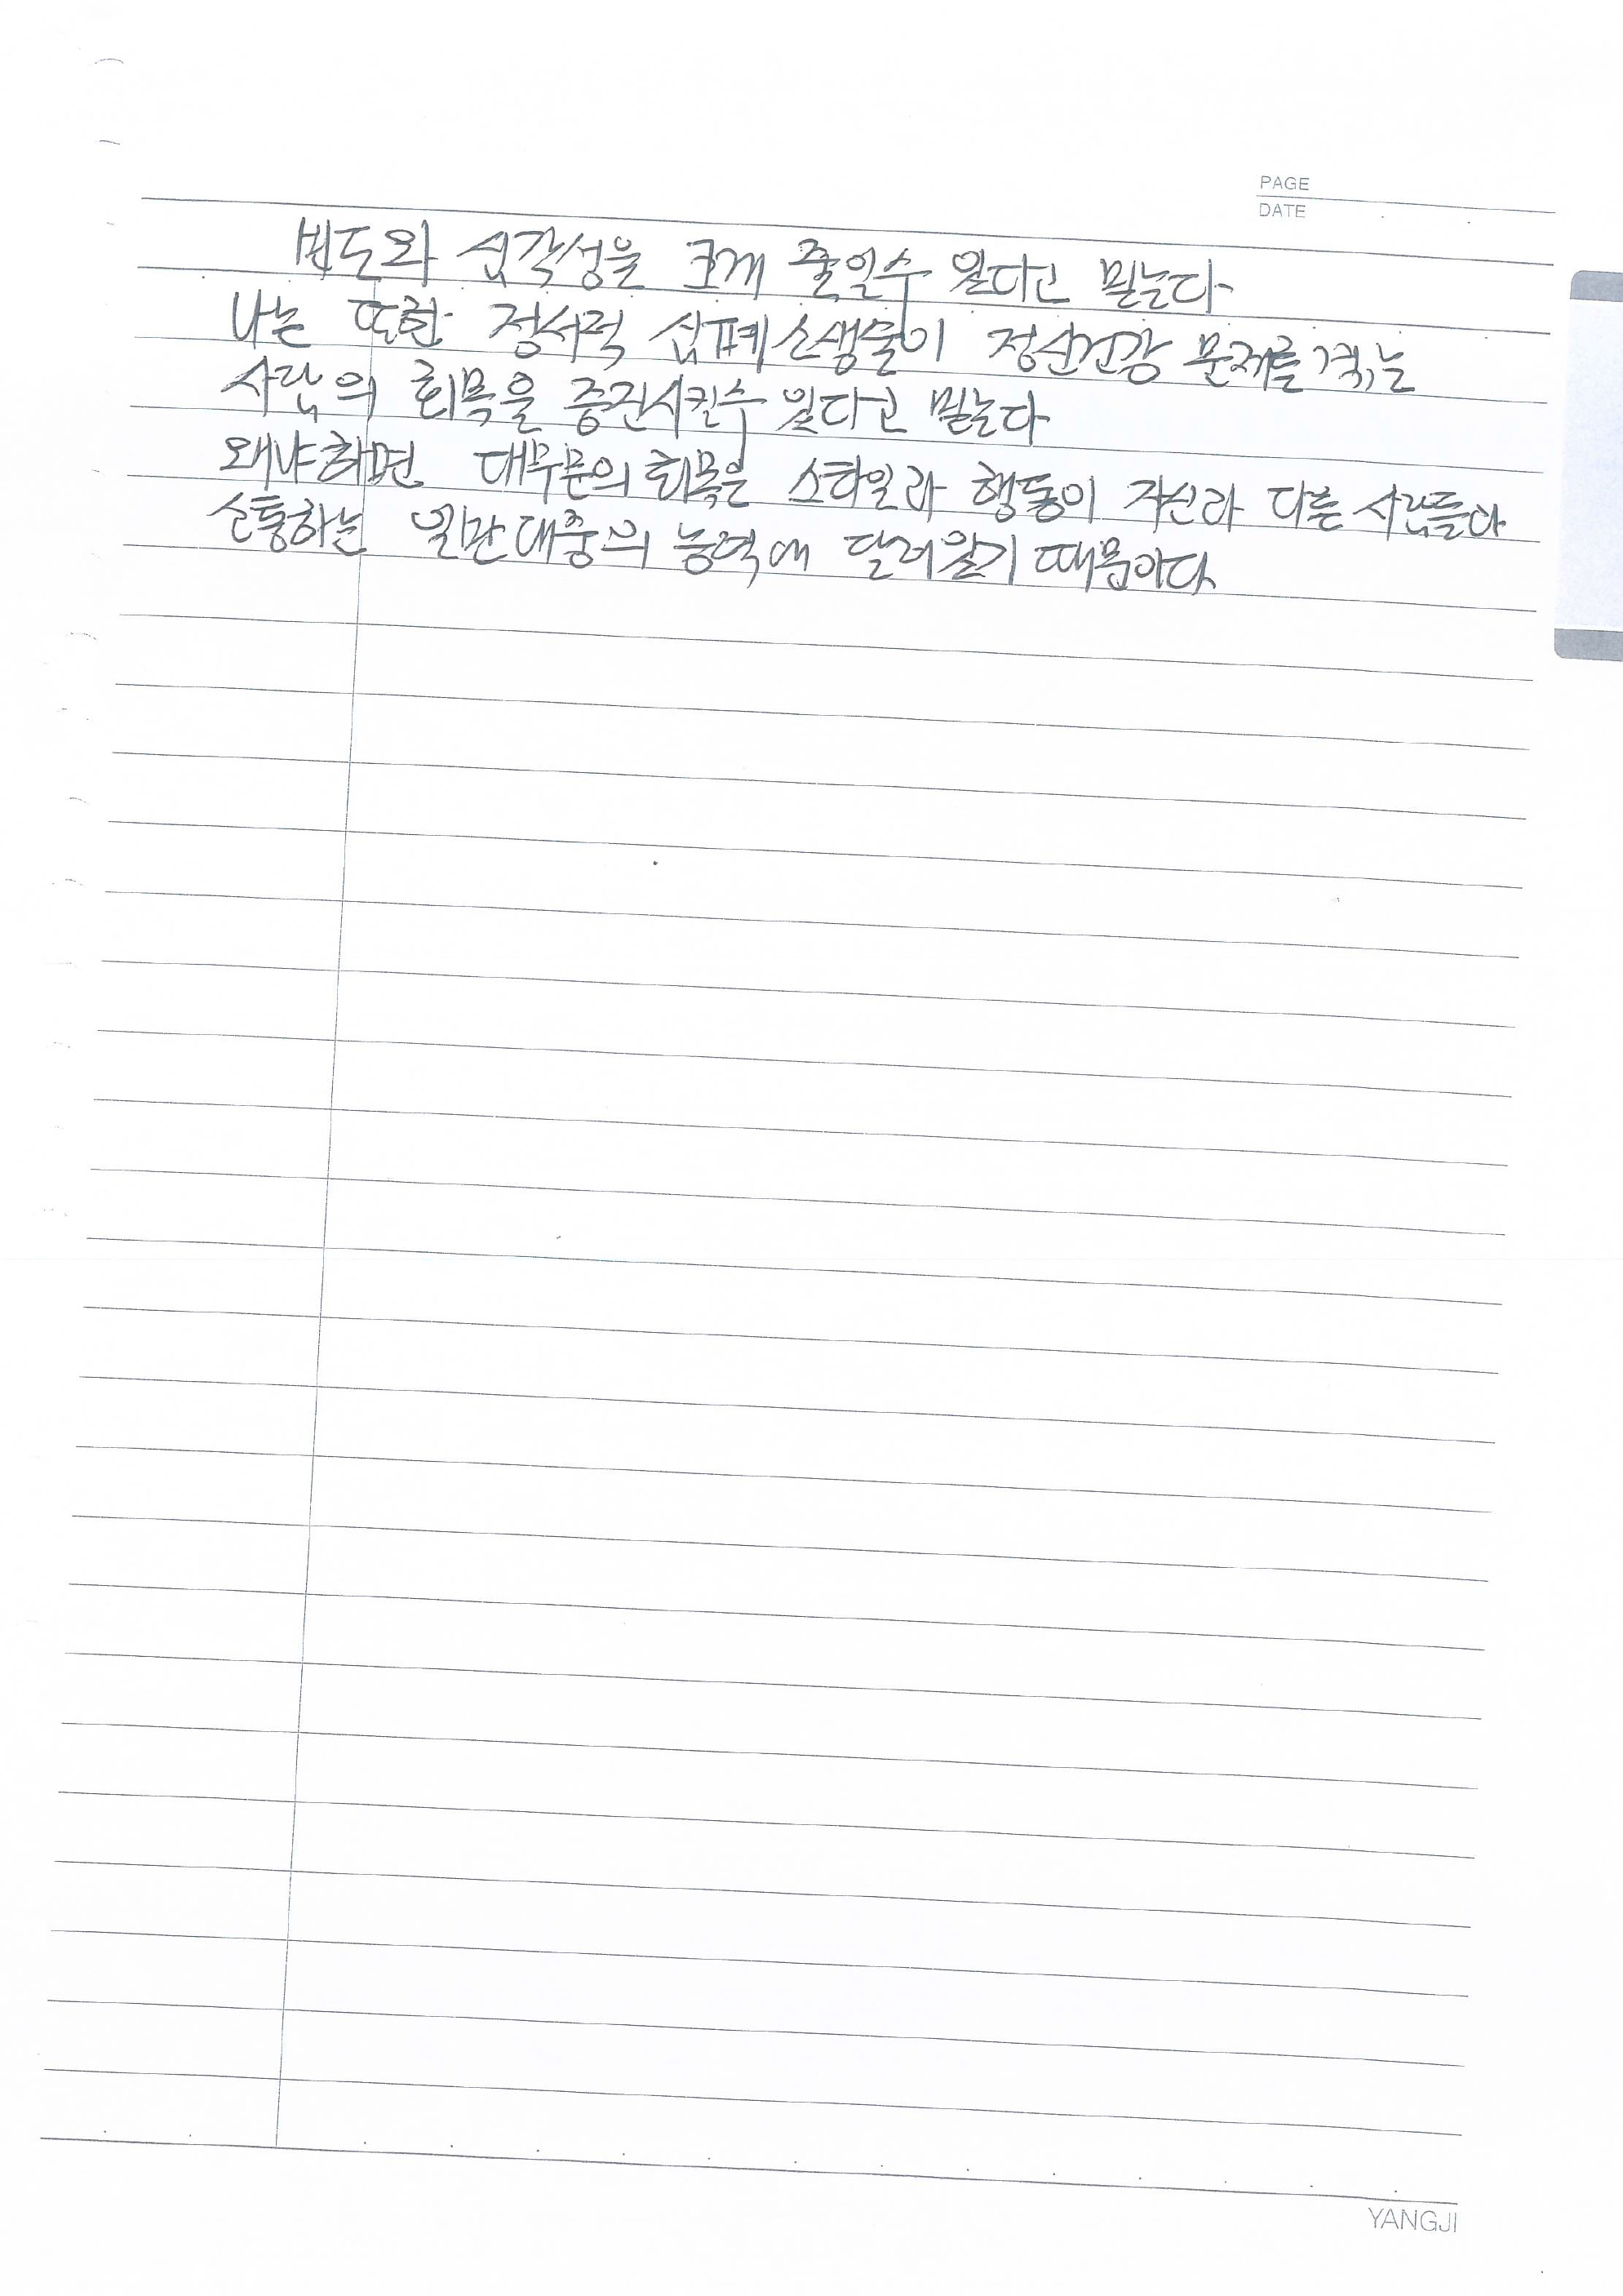 PAGE
DATE
빈도와 심각성을 크게 줄일수 있다고 믿는다
나는 또한 정서적 심폐소생술이 정신건강 문제를 겪는
사람의 회복을 증진시킬수 있다고 믿는다
왜냐하면 대부분의 회복은 스타일과 행동이 자신과 다른 사람들과
소통하는 일반대중의 능력에 달려있기 때문이다
YANGJI